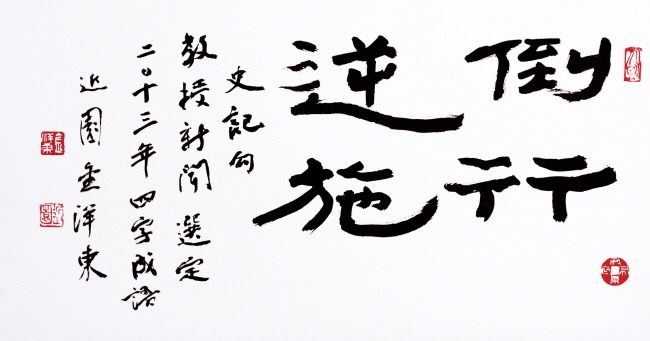 倒行
逆施
史記句
教授新聞選定
二〇十三年四字成語
近園金洋東